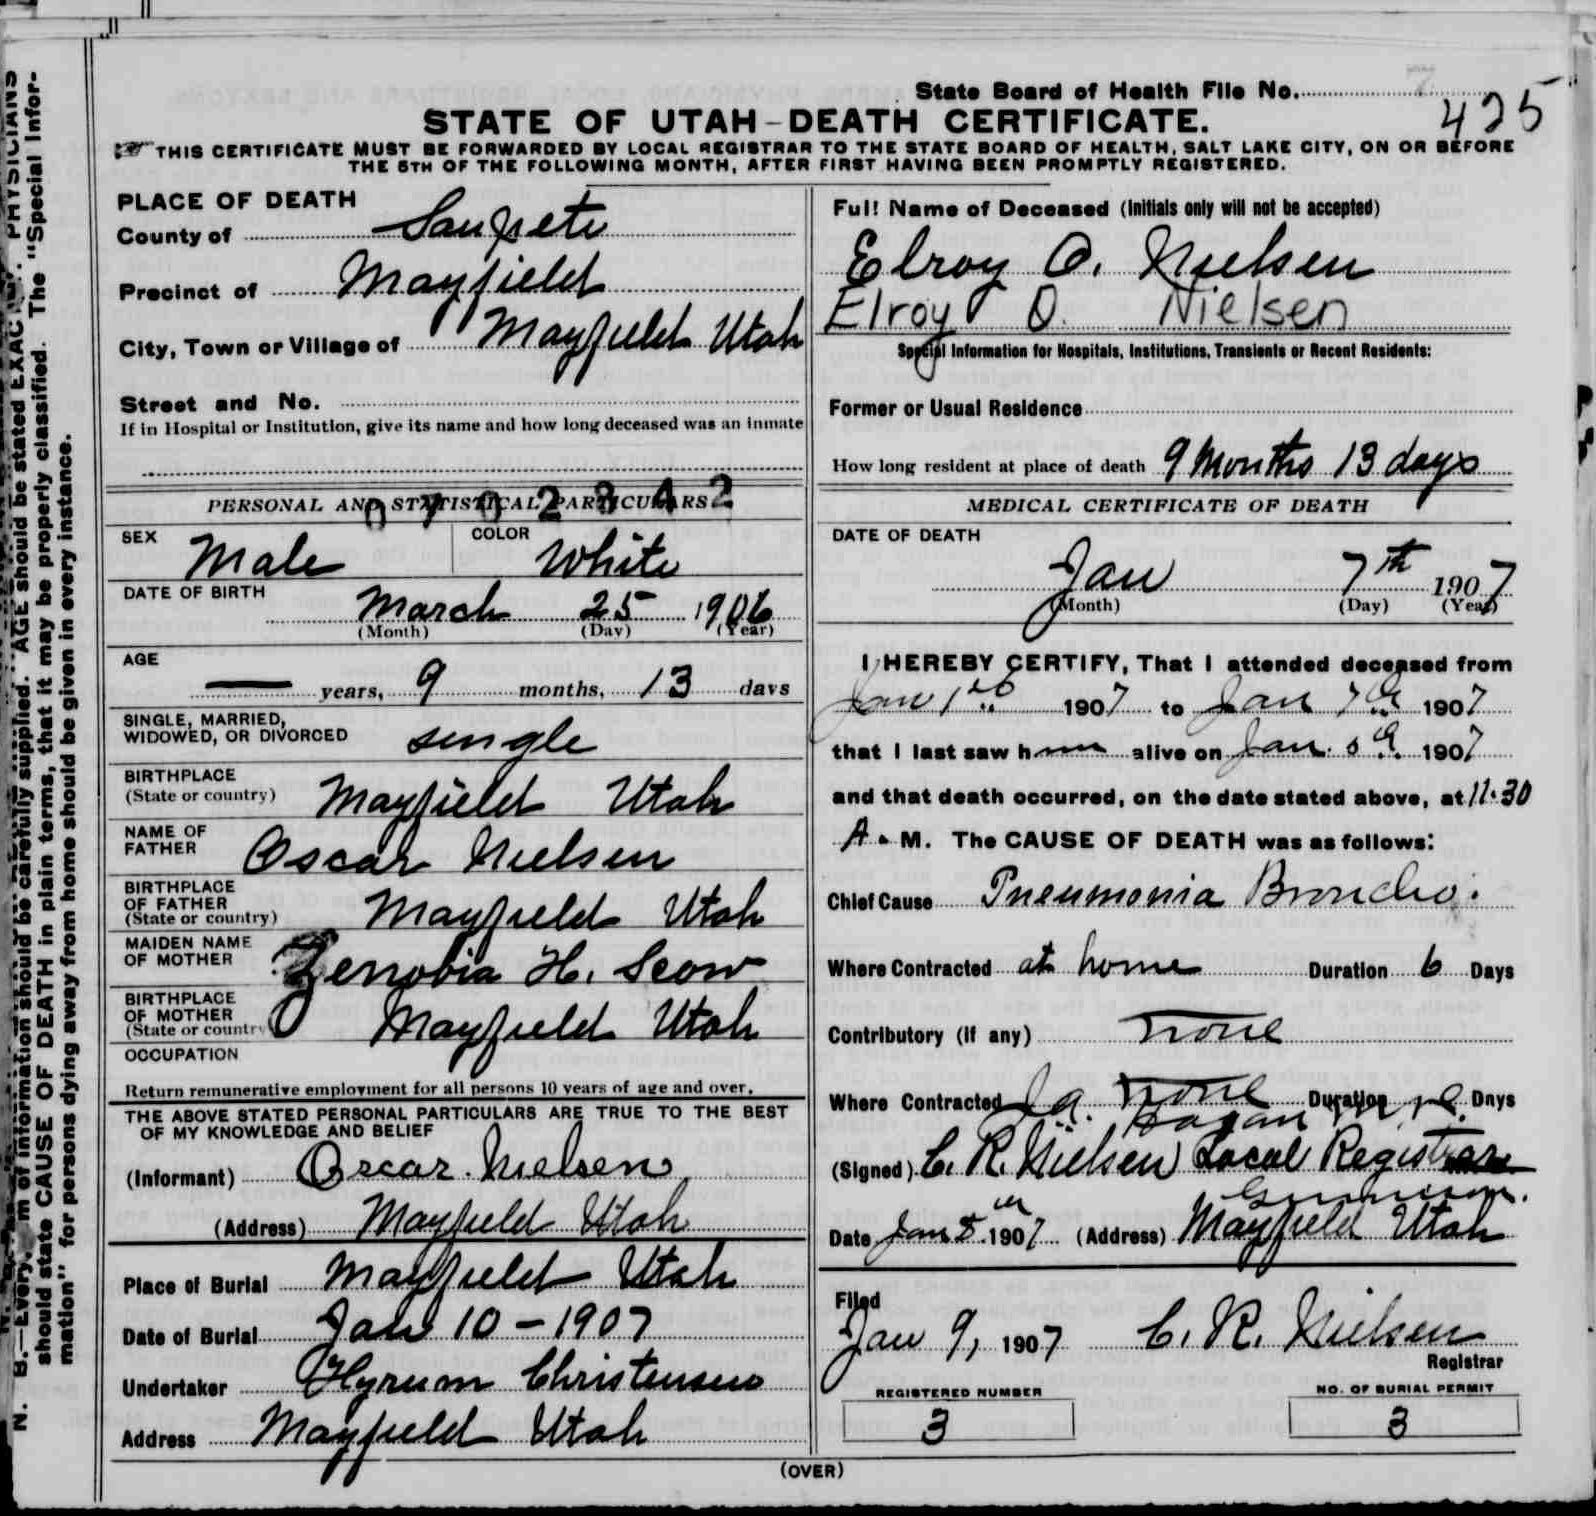 State Board of Health File No.
425
STATE OF UTAH-DEATH CERTIFICATE.
THIS CERTIFICATE MUST BE FORWARDED BY LOCAL REGISTRAR TO THE STATE BOARD OF HEALTH, SALT LAKE CITY, ON OR BEFORE
THE 5TH OF THE FOLLOWING MONTH, AFTER FIRST HAVING BEEN PROMPTLY REGISTERED.
PLACE OF DEATH
County of Sanpete
Precinct of Mayfield
City, Town or Village of Mayfield Utah
Street and No.
If in Hospital or Institution, give its name and how long deceased was an inmate
PERSONAL AND STATISTICAL PARTICULARS
0 7 0 2 3 4 2
SEX Male COLOR White
DATE OF BIRTH
March 25 1906
(Month) (Day) (Year)
AGE
— years, 9 months, 13 days
SINGLE, MARRIED,
WIDOWED, OR DIVORCED single
BIRTHPLACE
(State or country) Mayfield Utah
NAME OF
FATHER Oscar Nielsen
BIRTHPLACE
OF FATHER
(State or country) Mayfield Utah
MAIDEN NAME
OF MOTHER Zenobia H. Scow
BIRTHPLACE
OF MOTHER
(State or country Mayfield Utah
OCCUPATION
Return remunerative employment for all persons 10 years of age and over.
THE ABOVE STATED PERSONAL PARTICULARS ARE TRUE TO THE BEST
OF MY KNOWLEDGE AND BELIEF
(Informant) Oscar Nielsen
(Address) Mayfield Utah
Place of Burial Mayfield Utah
Date of Burial Jan 10-1907
Undertaker Hyrum Christensen
Address Mayfield Utah
Full Name of Deceased (Initials only will not be accepted)
Elroy O. Nielsen
Elroy O. Nielsen
Special Information for Hospitals, Institutions, Transients or Recent Residents:
Former or Usual Residence
How long resident at place of death 9 Months 13 days
MEDICAL CERTIFICATE OF DEATH
DATE OF DEATH
Jan 7th 1907
(Month) (Day) (Year)
I HEREBY CERTIFY, That I attended deceased from
Jan 1st 1907 to Jan 7th 1907
that I last saw him alive on Jan. 1907
and that death occurred, on the date stated above, at 11.30
A. M. The CAUSE OF DEATH was as follows:
Chief Cause Pneumonia Broncho.
Where Contracted at home Duration 6 Days
Contributory (if any) none
Where Contracted none Duration Days
(Signed) C. R. Nielsen Local Registrar
Date Jan 1907 (Address) Mayfield Utah
Filed
Jan 9, 1907 C. R. Nielsen
Registrar
REGISTERED NUMBER
3
NO. OF BURIAL PERMIT
3
(OVER)
N. B.—Every
m of information should be carefully supplied. AGE should be stated EXAC
PHYSICIANS
should state CAUSE OF DEATH in plain terms, that it may be properly classified. The "Special Infor-
mation" for persons dying away from home should be given in every instance.